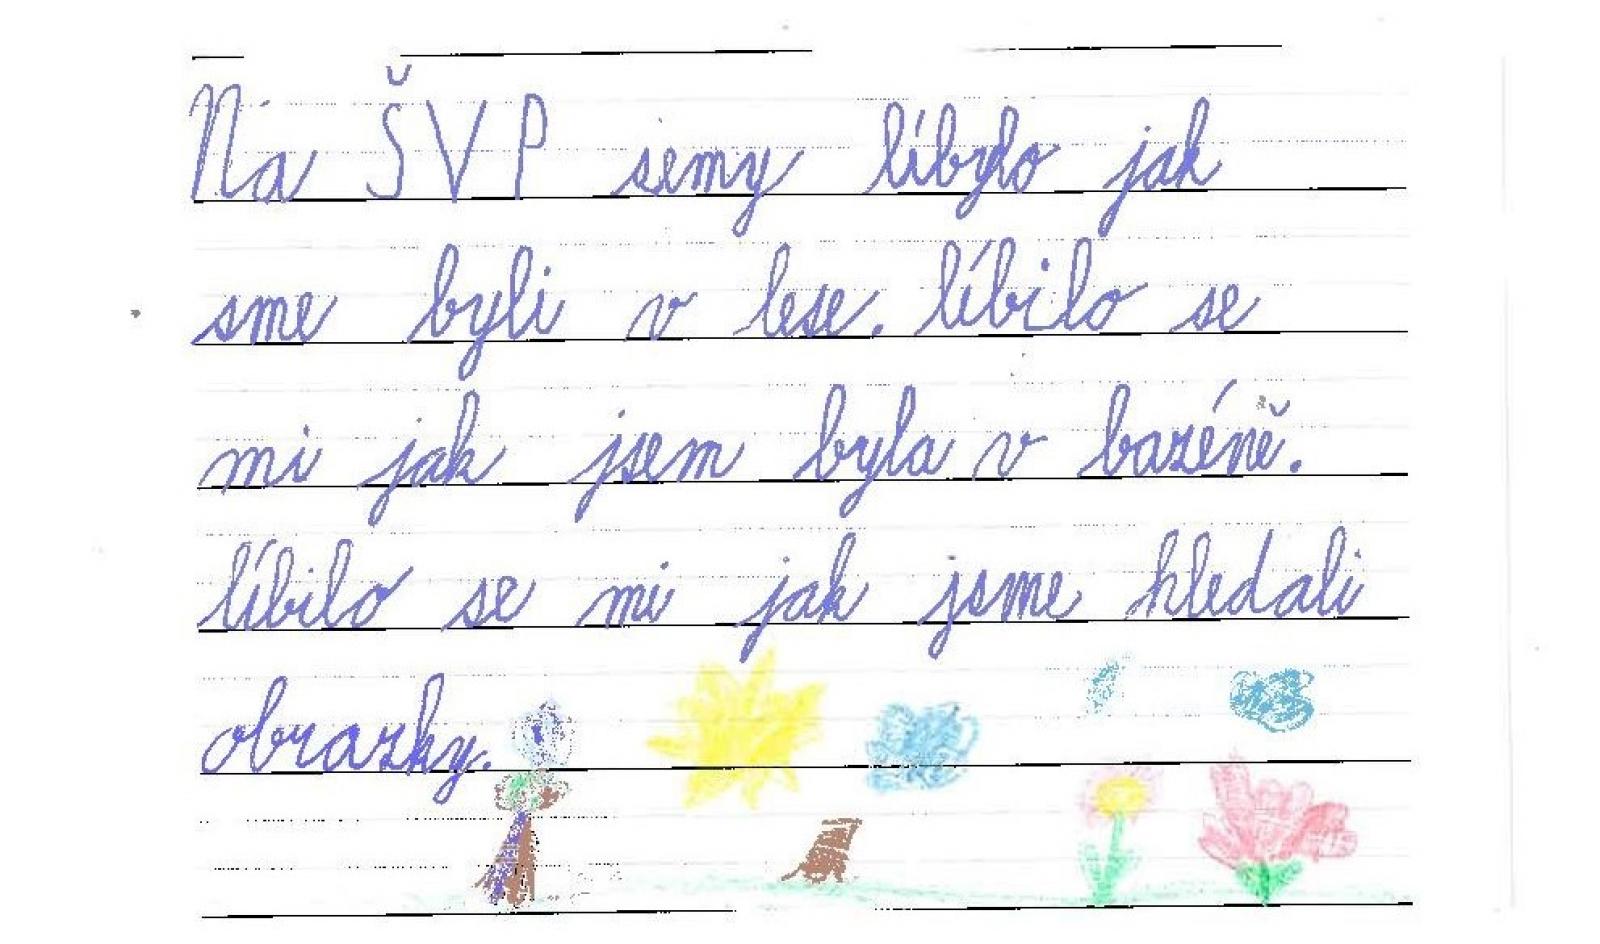 Na ŠVP semy líbylo jak
sme byli v lese. líbilo se
mi jak jsem byla v bazéně.
líbilo se mi jak jsme hledali
obrazky.